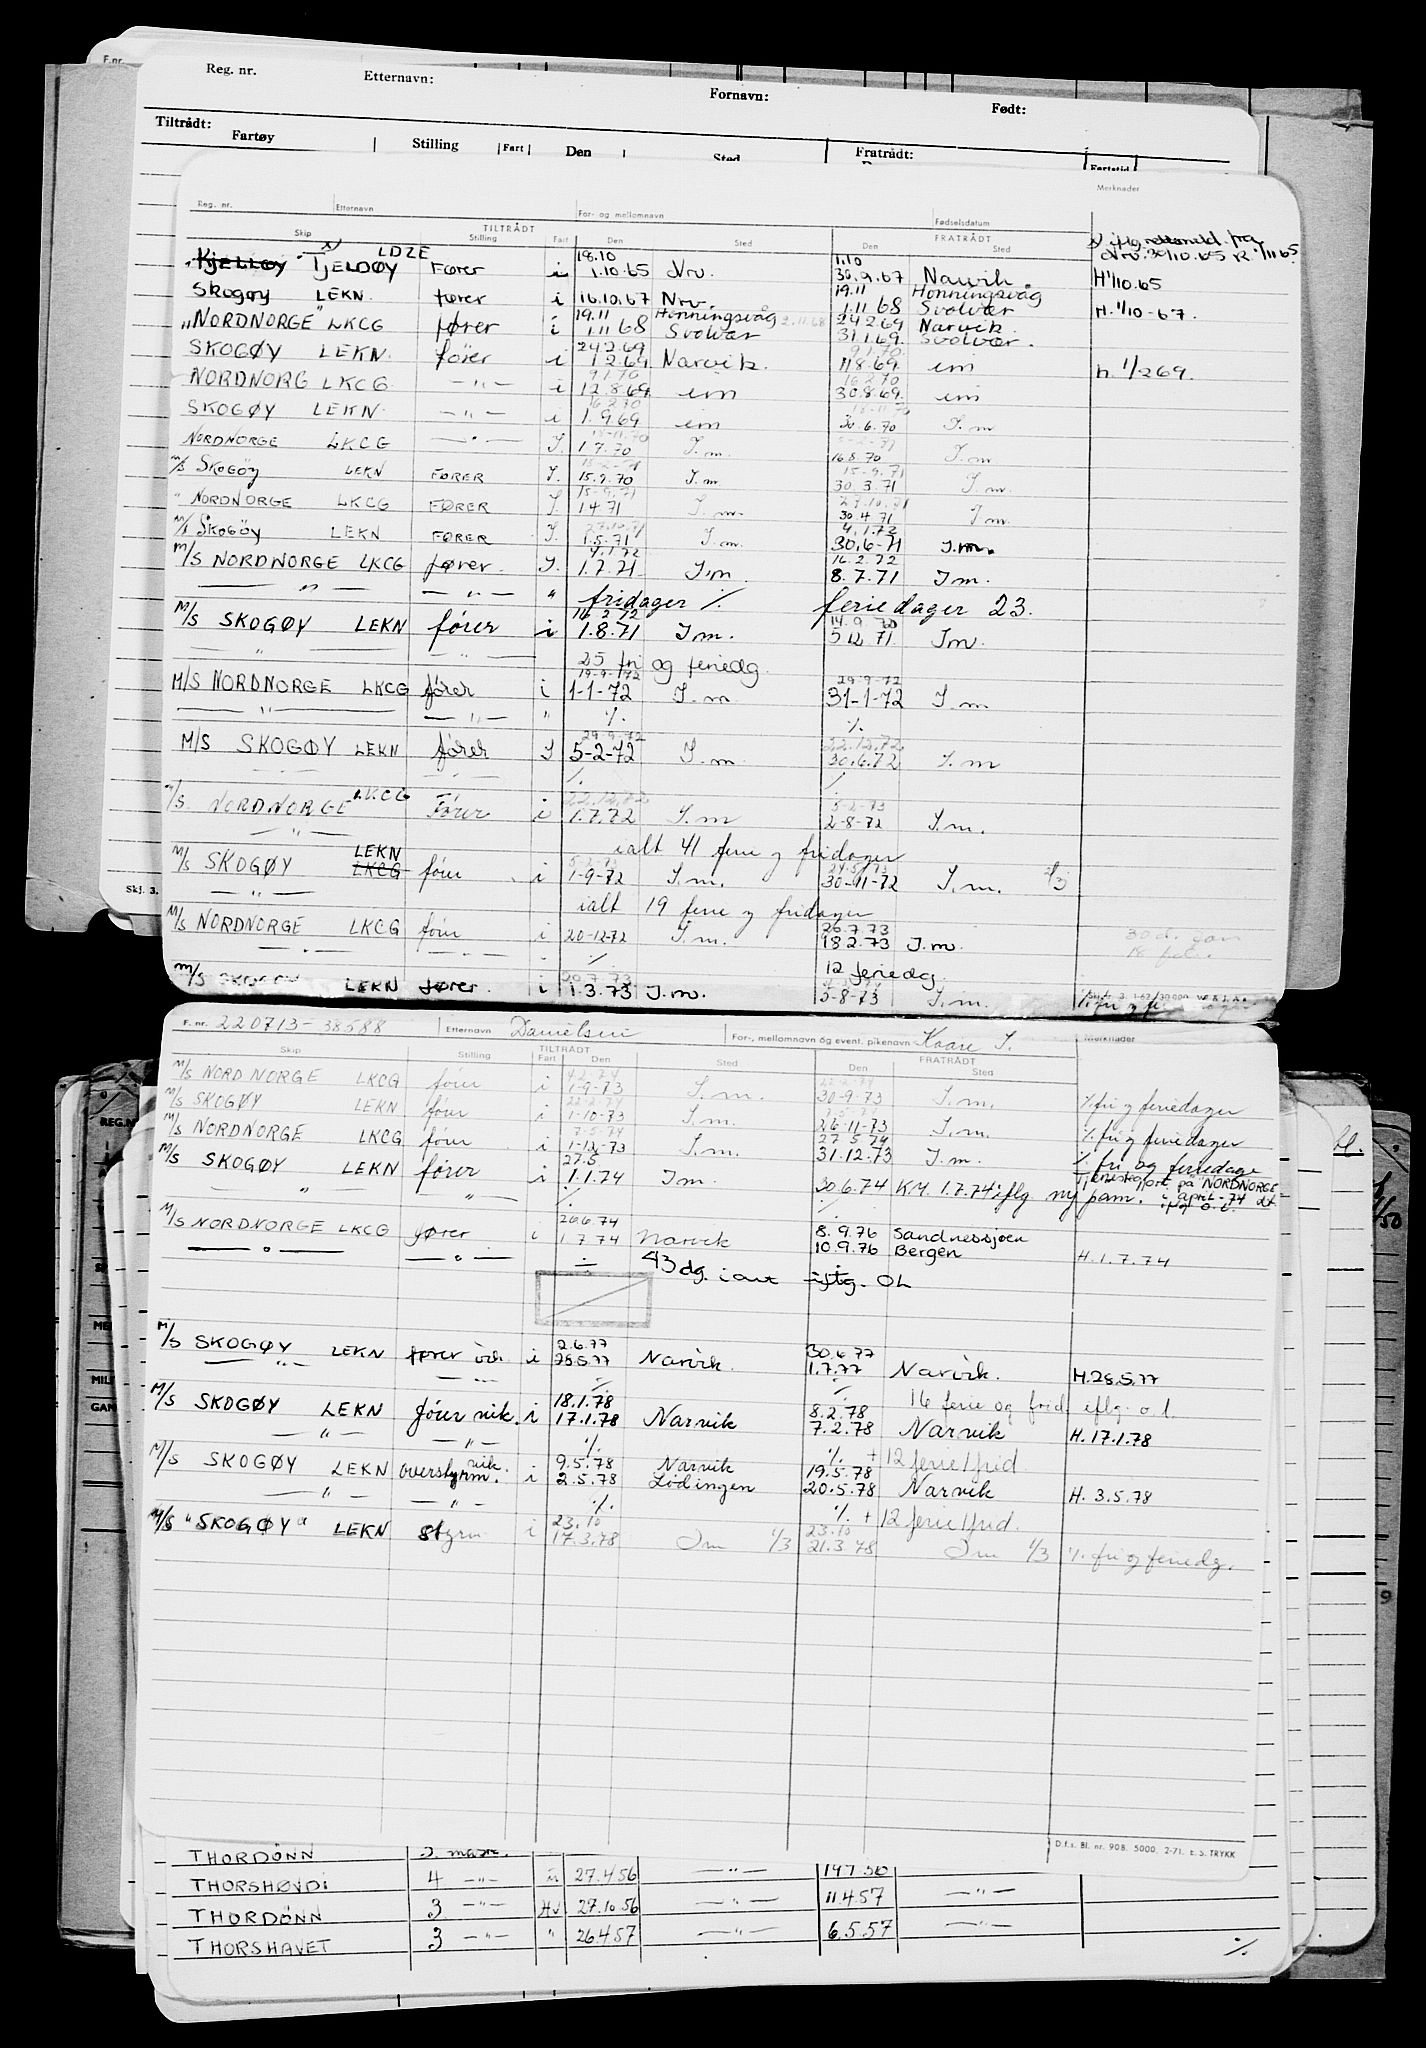 F.nr.
Reg. nr. Etternavn: Fornavn: Født:
Tiltrådt: Fratrådt:
Fartøy Stilling Fart Den Sted Fartstid
Merknader
Reg. nr. Etternavn For- og mellomnavn Fødselsdatum
TILTRÅDT FRATRÅDT
Skip Stilling Fart Den Sted Den Sted
LDZE 18.10 1.10
Kjelløy TJELDØY Fører i 1.10.65 Nrv. 30.9.67 Narvik H 1/10.65
19.11 Honningsvåg
Skogøy LEKN fører i 16.10.67 Nrv. 1.11 68 Svolvær H. 1/10-67.
19.11 Honningsvåg 2.11.68 24.2.69 Narvik
"NORDNORGE" LKCG fører i 1.11 68 Svolvær 31.1.69. Svolvær.
24.2.69 9.1.70
SKOGØY LEKN. fører i 1.2.69 Narvik 11.8.69. im h. 1/2 69.
9.1.70 16.2.70
NORDNORG LKCG. —"— i 12.8.69 im 30.8.69. im
16.2.70 18.11.70
SKOGØY LEKN. —"— i 1.9.69 im 30.6.70 I.m
18.11.70 5-2-71
NORDNORGE LKCG —"— I. 1.7.70 I.m. 16.8.70 I.m
15.9.71
M/S SKOGÖY LEKN FØRER I. 15.9.70 I.m 30.3.71 I.m.
15.9.71 27.10.71
" NORDNORGE LKCG FØRER I. 1.4.71 I.m. 30.4.71 I.m.
27.10.71 4.1.72
M/S SKOGÖY LEKN FØRER I. 1.5.71 I.m. 30.6-71 I.m.
4.1.72 16.2.72
M/S NORDNORGE LKCG fører. I. 1.7.71 I.m 8.7.71 I.m.
—"— —"— " fridager % feriedager 23.
16.2.72 14.9.72
M/S SKOGØY LEKN fører i 1.8.71 I.m. 5.12.71 I.m.
—"— —"— 25 fri og feriedg.
19.9.72 29.9.72
M/S NORDNORGE LKCG fører i 1-1-72 I.m 31-1-72 I.m
—"— —"— " % %
29.9.72 22.12.72
M/S SKOGØY LEKN fører I 5-2-72 I.m. 30.6.72 I.m
—"— % %
22.12.72 5-2-73
M/S. NORDNORGE LKCG Fører i 1.7.72 I.m 2-8-72 I.m.
—"— ialt 41 ferie og fridager
LEKN 5-2-73 24.5.73
M/S SKOGØY LKCG fører i 1-9-72 I.m. 30-11-72 I.m. 2/3
—"— ialt 19 ferie og fridager
26.7.73
M/S NORDNORGE LKCG fører i 20-12-72 I.m. 18.2.73 I.m. 30 d. jan
—"— % 12 feriedg. 18 feb.
M/S SKOGØY LEKN fører. i 1.3.73 I.m. 5-8-73 I.m. % fri og
Skj. 3.
F. nr. 220713-38588 Etternavn Danielsen For-, mellomnavn og event. pikenavn Kaare I. Merknader
TILTRÅDT FRATRÅDT
Skip Stilling Fart Den Sted Sted
4.2.74 22.2.74
M/S NORDNORGE LKCG fører i 1-9-73 I.m. 30-9.73 I.m. % fri og feriedager
22.2.74 7.5.74
M/S SKOGØY LEKN fører i 1-10-73 I.m. 26-11-73 I.m. % fri og feriedager
7.5.74 27.5.74
M/S NORDNORGE LKCG fører i 1-12-73 I.m. 31.12.73 I.m. % fri og feriedage
27.5
M/S SKOGØY LEKN fører i 1.1.74 I.m. 30.6.74 KM. 1.7.74 iflg ny pam. Tjenestegjort på "NORDNORGE" i april-74
—"— % % iflg o.l.
26.6.74 8.9.76 Sandnessjøen
M/S NORDNORGE LKCG fører i 1.7.74 Narvik 10.9.76 Bergen H.1.7.74
—"— —"— 43 dg. i aut iflg. OL
2.6.77 30.6.77
M/S SKOGØY LEKN fører vik. i 28.5.77 Narvik. 1.7.77 Narvik. H.28.5.77
—"— —"— % % 16 ferie og frid. iflg. o.l.
18.1.78 8.2.78
M/S SKOGØY LEKN fører vik. i 17.1.78 Narvik 7.2.78 Narvik H.17.1.78
—"— —"— % % + 12 ferie/frid
9.5.78 Narvik 19.5.78
M/S SKOGØY LEKN overstyrm. vik. i 2.5.78 Lødingen 20.5.78 Narvik H. 3.5.78
—"— —"— % % + 12 ferie/frid.
23.10 23.10
M/S "SKOGØY" LEKN styrm i 17.3.78 Im 1/3 21.3.78 Im 1/3 % fri og feriedg.
D.f.s. Bl. nr. 908. 5000. 2-71. E. S. TRYKK
THORDÖNN
THORSHØVDI 4 —"— 27.4.56 —"—
THORDÖNN 3 —"— Hv 27.10.56 —"— 11.4.57 —"—
THORSHAVET 3 —"— " 26.4.57 —"— 6.5.57 —"— %